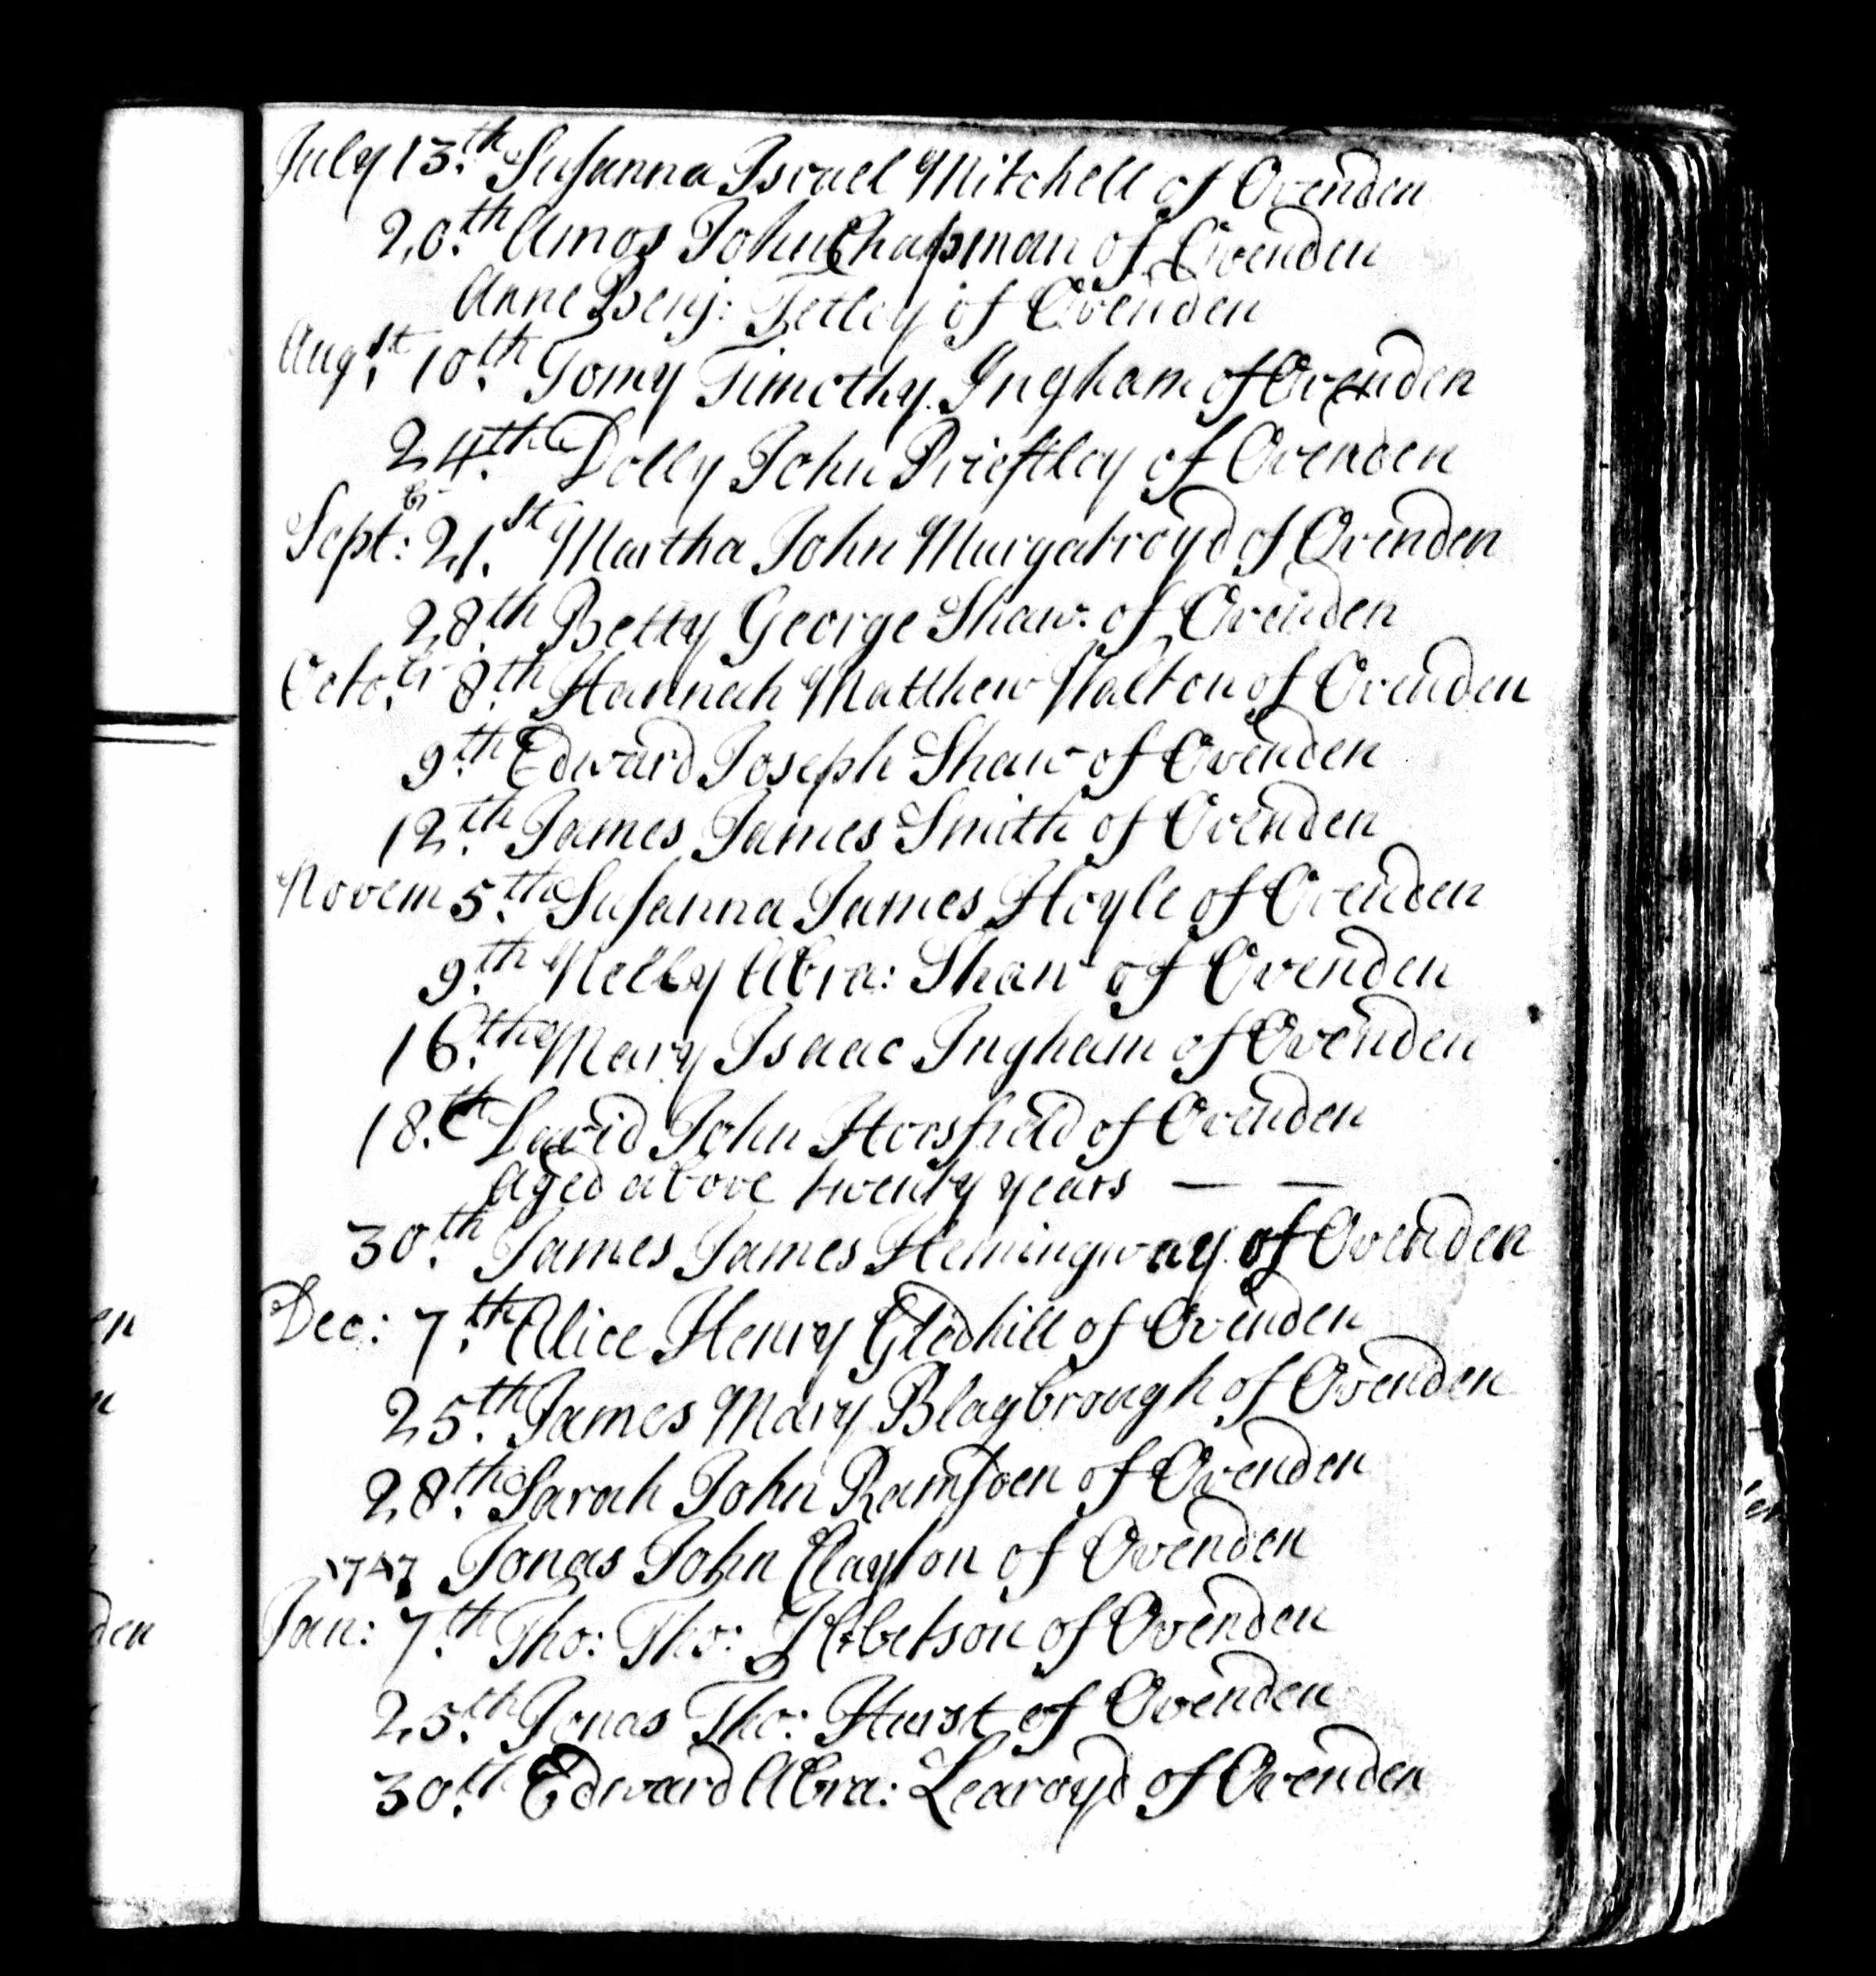 July 13.th Susanna Israel Mitchell of Ovenden
20.th Amos John Chapman of Ovenden
Anne Benj: Tetley of Ovenden
Aug.st 10.th Tomy Timothy Ingham of Ovenden
24.th Dolly John Priestley of Ovenden
Sept:br 21.st Martha John Murgatroyd of Ovenden
28.th Betty George Shaw of Ovenden
Octo.br 8.th Hannah Matthew Walton of Ovenden
9.th Edward Joseph Shaw of Ovenden
12.th James James Smith of Ovenden
Novem 5.th Susanna James Hoyle of Ovenden
9.th Nelly Abra: Shaw of Ovenden
16.th Mary Isaac Ingham of Ovenden
18.th David John Horsfield of Ovenden
Aged above twenty years — —
30.th James James Hemingway of Ovenden
Dec: 7.th Alice Henry Gledhill of Ovenden
25.th James Mary Blagbrough of Ovenden
28.th Sarah John Ramsden of Ovenden
1747 Jonas John Clayton of Ovenden
Jan: 7.th Tho: Tho: Ibbetson of Ovenden
25.th Jonas Tho: Hurst of Ovenden
30.th Edward Abra: Learoyd of Ovenden